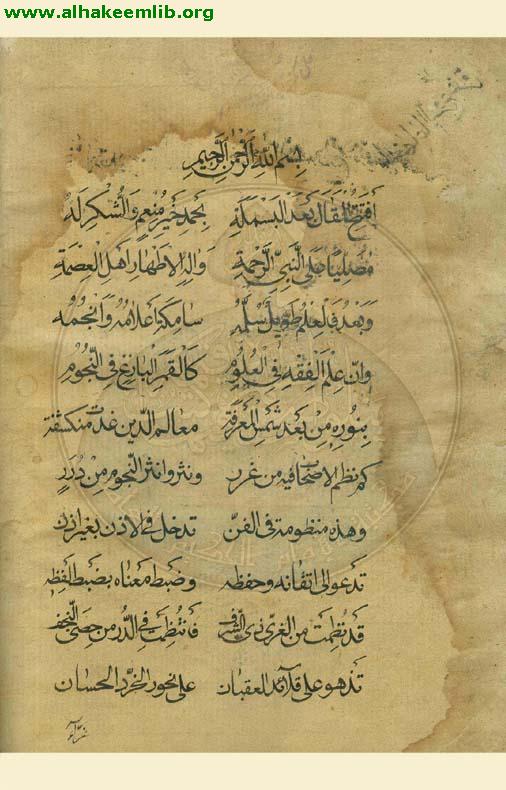 www.alhakeemlib.org
بِسْمِ اللهِ الرَّحْمٰنِ الرَّحِيمِ
افتتح المقال بعد البسملة بحمد خير منعم والشكر له
مصليا على النبي الرحمة وآله الأطهار أهل العصمة
وبعد فالعلم طويل سلمه سامكة أعلامه وأنجمه
وان علم الفقه في العلوم كالقمر البازغ في النجوم
بنوره من بعد شمس المعرفة معالم الدين غدت منكشفة
كم نظم الاصحاب فيه من غرر ونثروا نثر النجوم من درر
وهذه منظومة في الفن تدخل في الاذن بغير اذن
تدعو الى اتقانه وحفظه وضبط معناه بضبط لفظه
قد نظمت من الغري ذي الشرف فانتظمت في الدر من حصى النجف
تزهو على قلائد العقيان على نحور الخرد الحسان